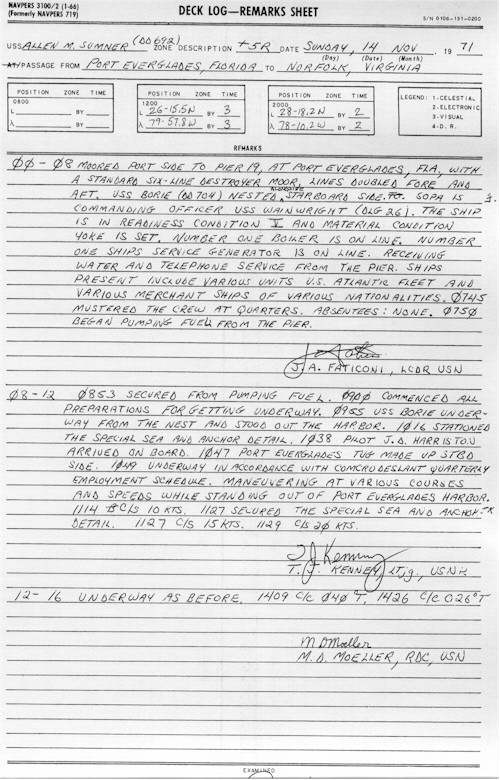 NAVPERS 3100/2 (1-66)
(Formerly NAVPERS 719)
DECK LOG—REMARKS SHEET
S/N 0106-151-0200
USS ALLEN M. SUMNER (DD692) ZONE DESCRIPTION +5R DATE SUNDAY, 14 NOV 1971
(Day) (Date) (Month)
AT/PASSAGE FROM PORT EVERGLADES, FLORIDA TO NORFOLK, VIRGINIA
POSITION ZONE TIME
0800
L BY
λ BY
POSITION ZONE TIME
1200
L 26-15.5N BY 3
λ 79-57.8W BY 3
POSITION ZONE TIME
2000
L 28-18.2N BY 2
λ 78-10.2W BY 2
LEGEND: 1-CELESTIAL
2-ELECTRONIC
3-VISUAL
4-D. R.
REMARKS
00-08 MOORED PORT SIDE TO PIER 19, AT PORT EVERGLADES, FLA, WITH
A STANDARD SIX-LINE DESTROYER MOOR, LINES DOUBLED FORE AND
AFT. USS BORIE (DD704) NESTED ALONGSIDE STARBOARD SIDE TO. SOPA IS
COMMANDING OFFICER USS WAINWRIGHT (DLG 26). THE SHIP
IS IN READINESS CONDITION V AND MATERIAL CONDITION
YOKE IS SET. NUMBER ONE BOILER IS ON LINE. NUMBER
ONE SHIPS SERVICE GENERATOR IS ON LINE. RECEIVING
WATER AND TELEPHONE SERVICE FROM THE PIER. SHIPS
PRESENT INCLUDE VARIOUS UNITS U.S. ATLANTIC FLEET AND
VARIOUS MERCHANT SHIPS OF VARIOUS NATIONALITIES. 0745
MUSTERED THE CREW AT QUARTERS. ABSENTEES: NONE. 0750
BEGAN PUMPING FUEL FROM THE PIER.
J. A. FATICONI, LCDR USN
08-12 0853 SECURED FROM PUMPING FUEL. 0900 COMMENCED ALL
PREPARATIONS FOR GETTING UNDERWAY. 0955 USS BORIE UNDER-
WAY FROM THE NEST AND STOOD OUT THE HARBOR. 1016 STATIONED
THE SPECIAL SEA AND ANCHOR DETAIL. 1038 PILOT J.D. HARRISTON
ARRIVED ON BOARD. 1047 PORT EVERGLADES TUG MADE UP STBD
SIDE. 1049 UNDERWAY IN ACCORDANCE WITH COMCRUDESLANT QUARTERLY
EMPLOYMENT SCHEDULE. MANEUVERING AT VARIOUS COURSES
AND SPEEDS WHILE STANDING OUT OF PORT EVERGLADES HARBOR.
1114 C/S 10 KTS. 1127 SECURED THE SPECIAL SEA AND ANCHOR
DETAIL. 1127 C/S 15 KTS. 1129 C/S 20 KTS.
T. J. Kenney
T. J. KENNEY, LTjg, USNR
12-16 UNDERWAY AS BEFORE. 1409 C/C 040°T. 1426 C/C 026°T
M D Moeller
M. D. MOELLER, RDC, USN
EXAMINED